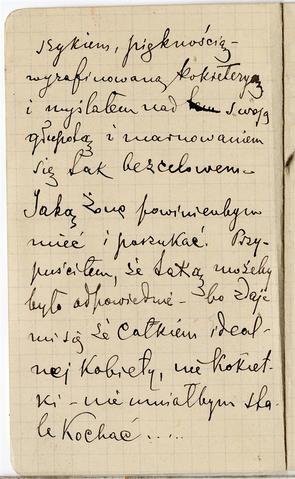 szykiem, pięknością
wyrafinowaną kokieteryą
i myślałem nad swoją
głupotą i marnowaniem
się tak bezcelowem –
Jaką żonę powinienbym
mieć i poszukać. Przy-
puściłem, że taką możeby
było odpowiednie – bo zdaje
mi się że całkiem ideal-
nej kobiety, nie kokiet-
ki – nie umiałbym sta-
le kochać.....